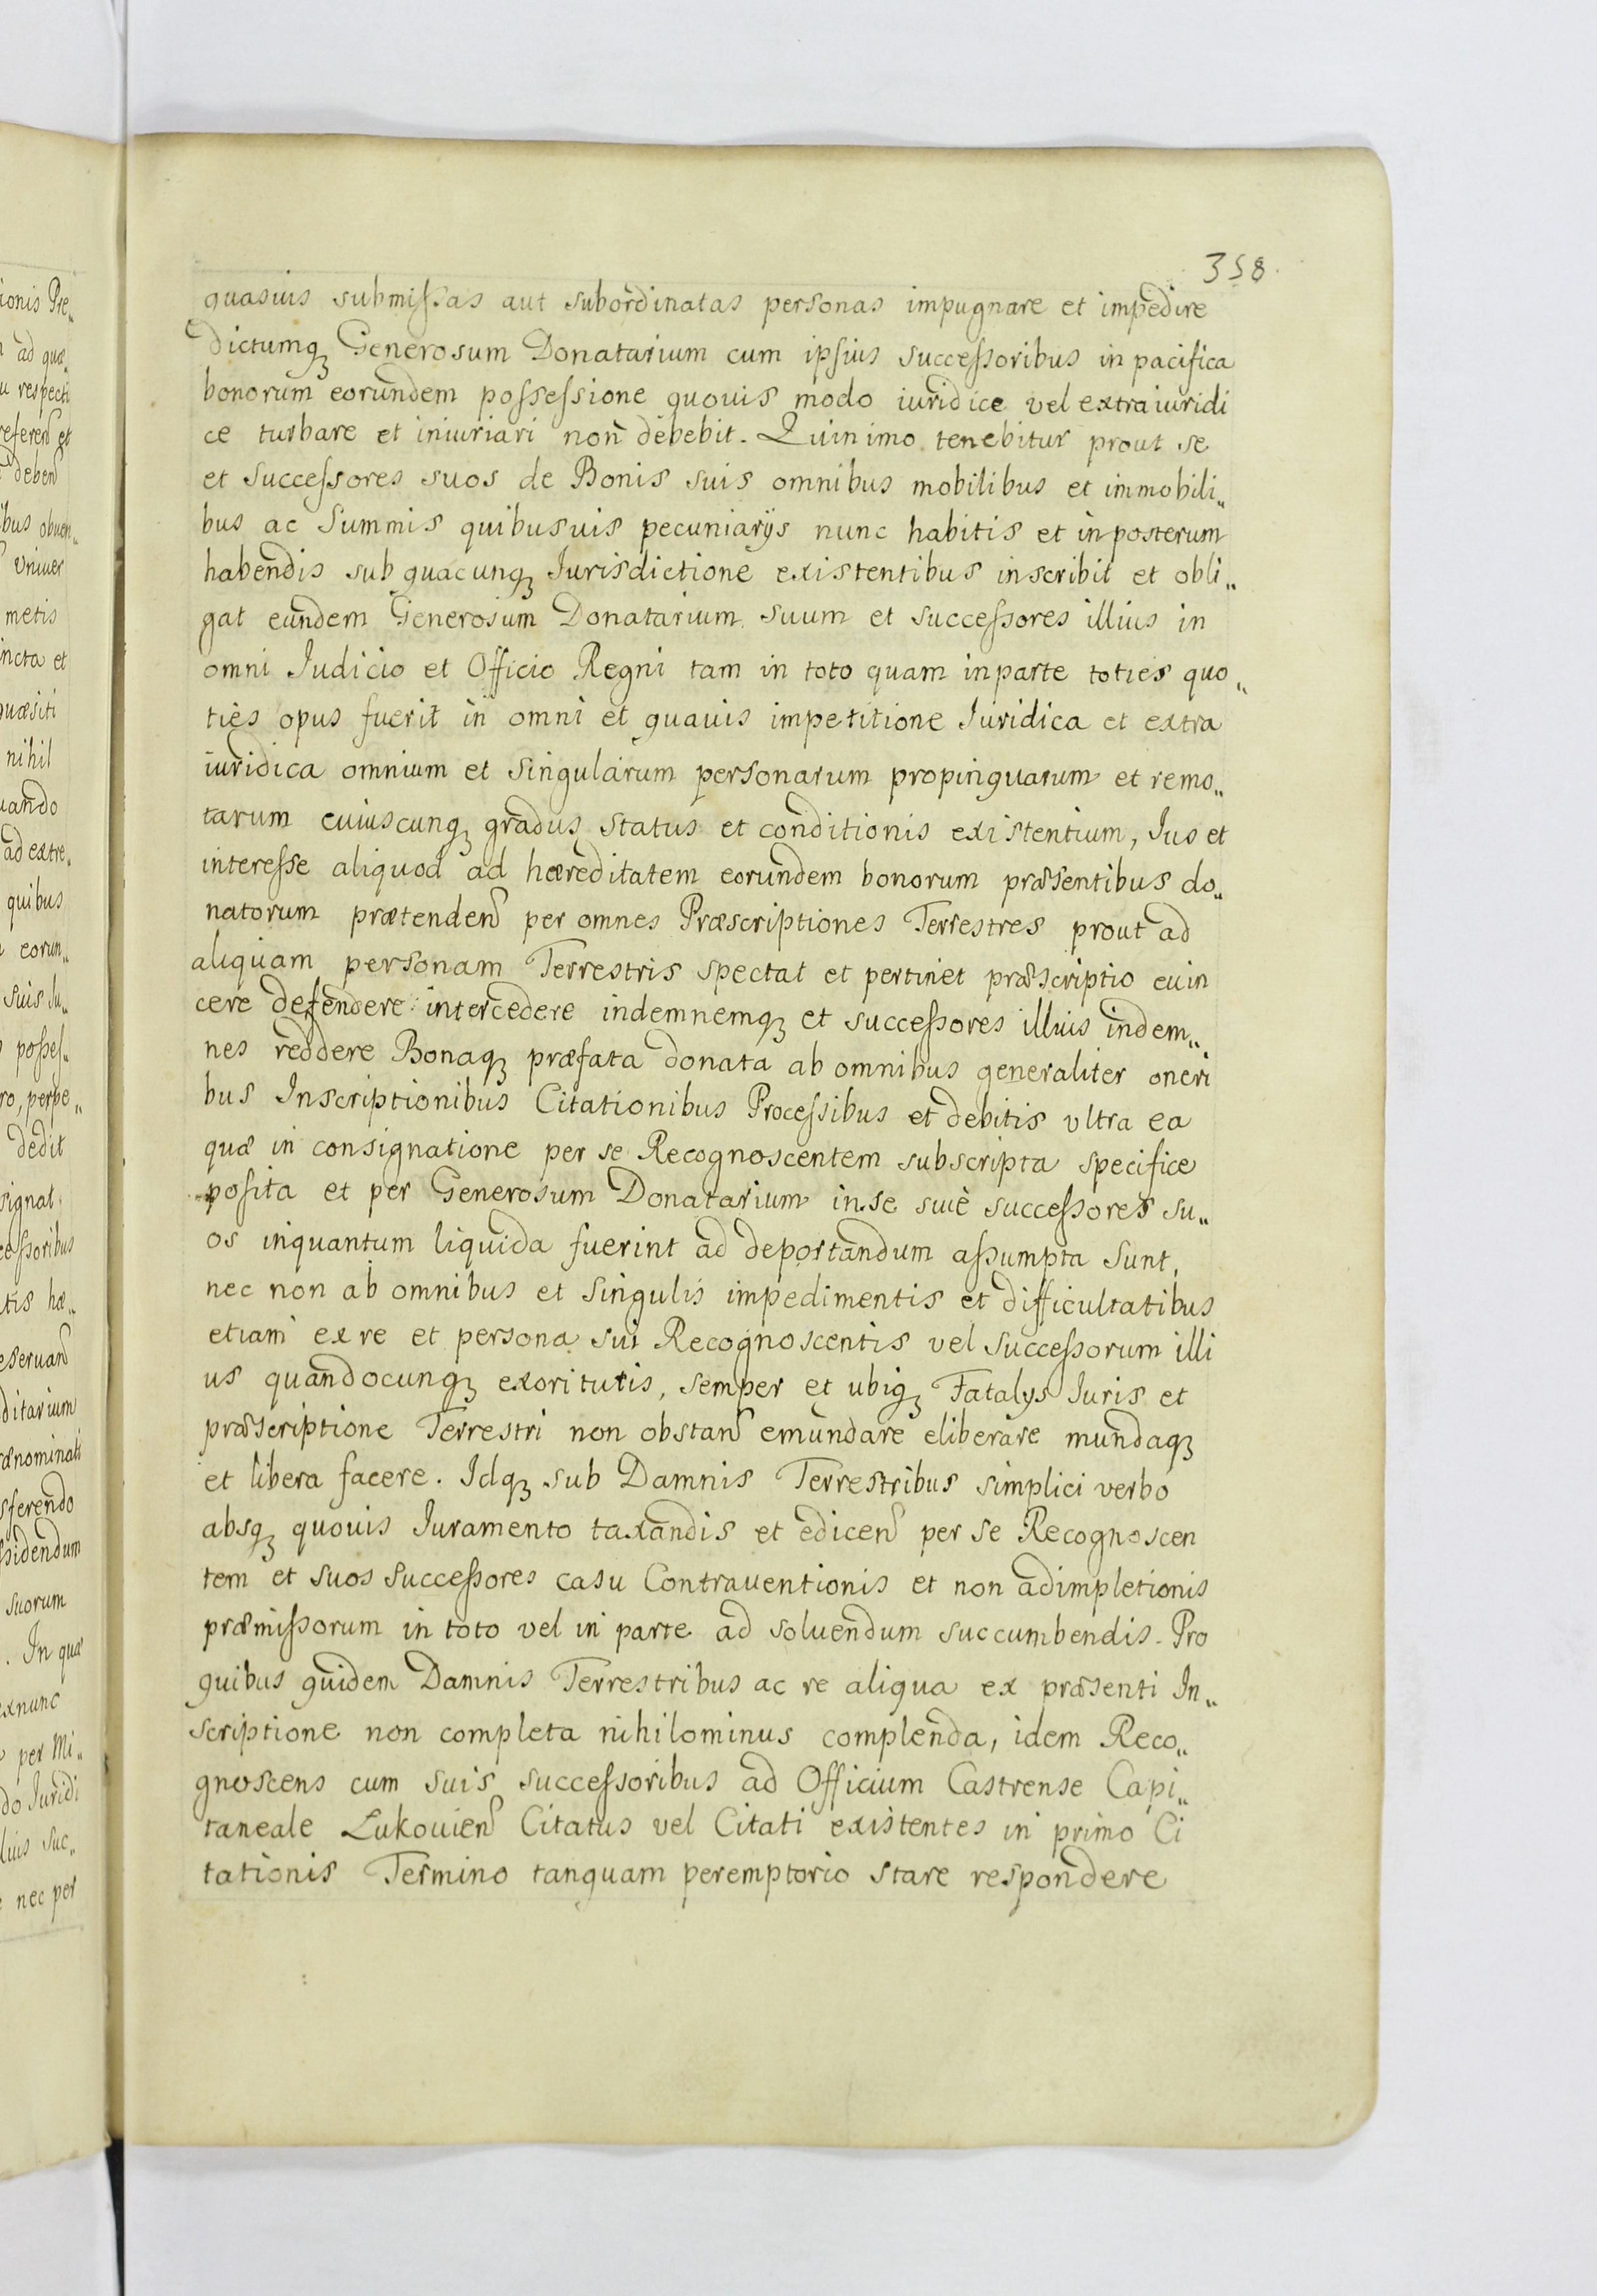 358.
quasuis submissas aut subordinatas personas impugnare et impedire
dictumq₃ Generosum Donatarium cum ipsius successoribus in pacifica
bonorum eorundem possessione quouis modo iuridice vel extraiuridi
ce turbare et iniuriari non debebit. Quinimo tenebitur prout se
et successores suos de Bonis suis omnibus mobilibus et immobili„
bus ac Summis quibusuis pecuniarijs nunc habitis et inposterum
habendis sub quacunq₃ Iurisdictione existentibus inscribit et obli„
gat eundem Generosum Donatarium suum et successores illius in
omni Iudicio et Officio Regni tam in toto quam inparte toties quo„
ties opus fuerit in omni et quauis impetitione Iuridica et extra
iuridica omnium et singularum personarum propinquarum et remo„
tarum cuiuscunq₃ gradus status et conditionis existentium, Ius et
interesse aliquod ad hæreditatem eorundem bonorum præsentibus do„
natorum prætenden̄ per omnes Præscriptiones Terrestres prout ad
aliquam personam Terrestris spectat et pertinet præscriptio euin
cere defendere intercedere indemnemq₃ et successores illius indem„
nes reddere Bonaq₃ præfata donata ab omnibus generaliter oneri
bus Inscriptionibus Citationibus Processibus et debitis vltra ea
quæ in consignatione per se Recognoscentem subscripta specifice
posita et per Generosum Donatarium in se suiè successores su„
os inquantum liquida fuerint ad deportandum assumpta sunt,
nec non ab omnibus et singulis impedimentis et difficultatibus
etiam ex re et persona sui Recognoscentis vel successorum illi
us quandocunq₃ exorituris, semper et ubiq₃ Fatalys Iuris et
præscriptione Terrestri non obstan̄ emundare eliberare mundaq₃
et libera facere. Idq₃ sub Damnis Terrestribus simplici verbo
absq₃ quouis Iuramento taxandis et edicen̄ per se Recognoscen
tem et suos successores casu Contrauentionis et non adimpletionis
præmissorum in toto vel in parte ad soluendum succumbendis. Pro
quibus quidem Damnis Terrestribus ac re aliqua ex præsenti In„
scriptione non completa nihilominus complenda, idem Reco„
gnoscens cum suis successoribus ad Officium Castrense Capi„
taneale Lukouien̄ Citatus vel Citati existentes in primo Ci
tationis Termino tanquam peremptorio stare respondere